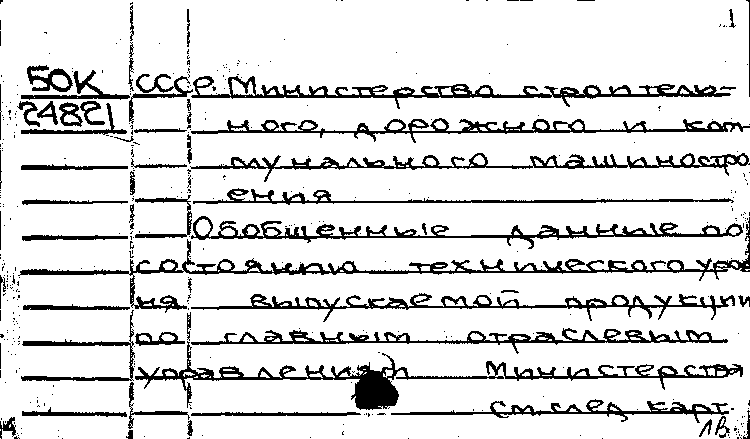 1
50К СССР. Министерство строитель-
24821 ного, дорожного и ком
мунального машиностро
ения
Обобщенные данные по
состоянию технического уров
ня выпускаемой продукции
по главным отраслевым
управлениям Министерства
см. след карт.
4 1В